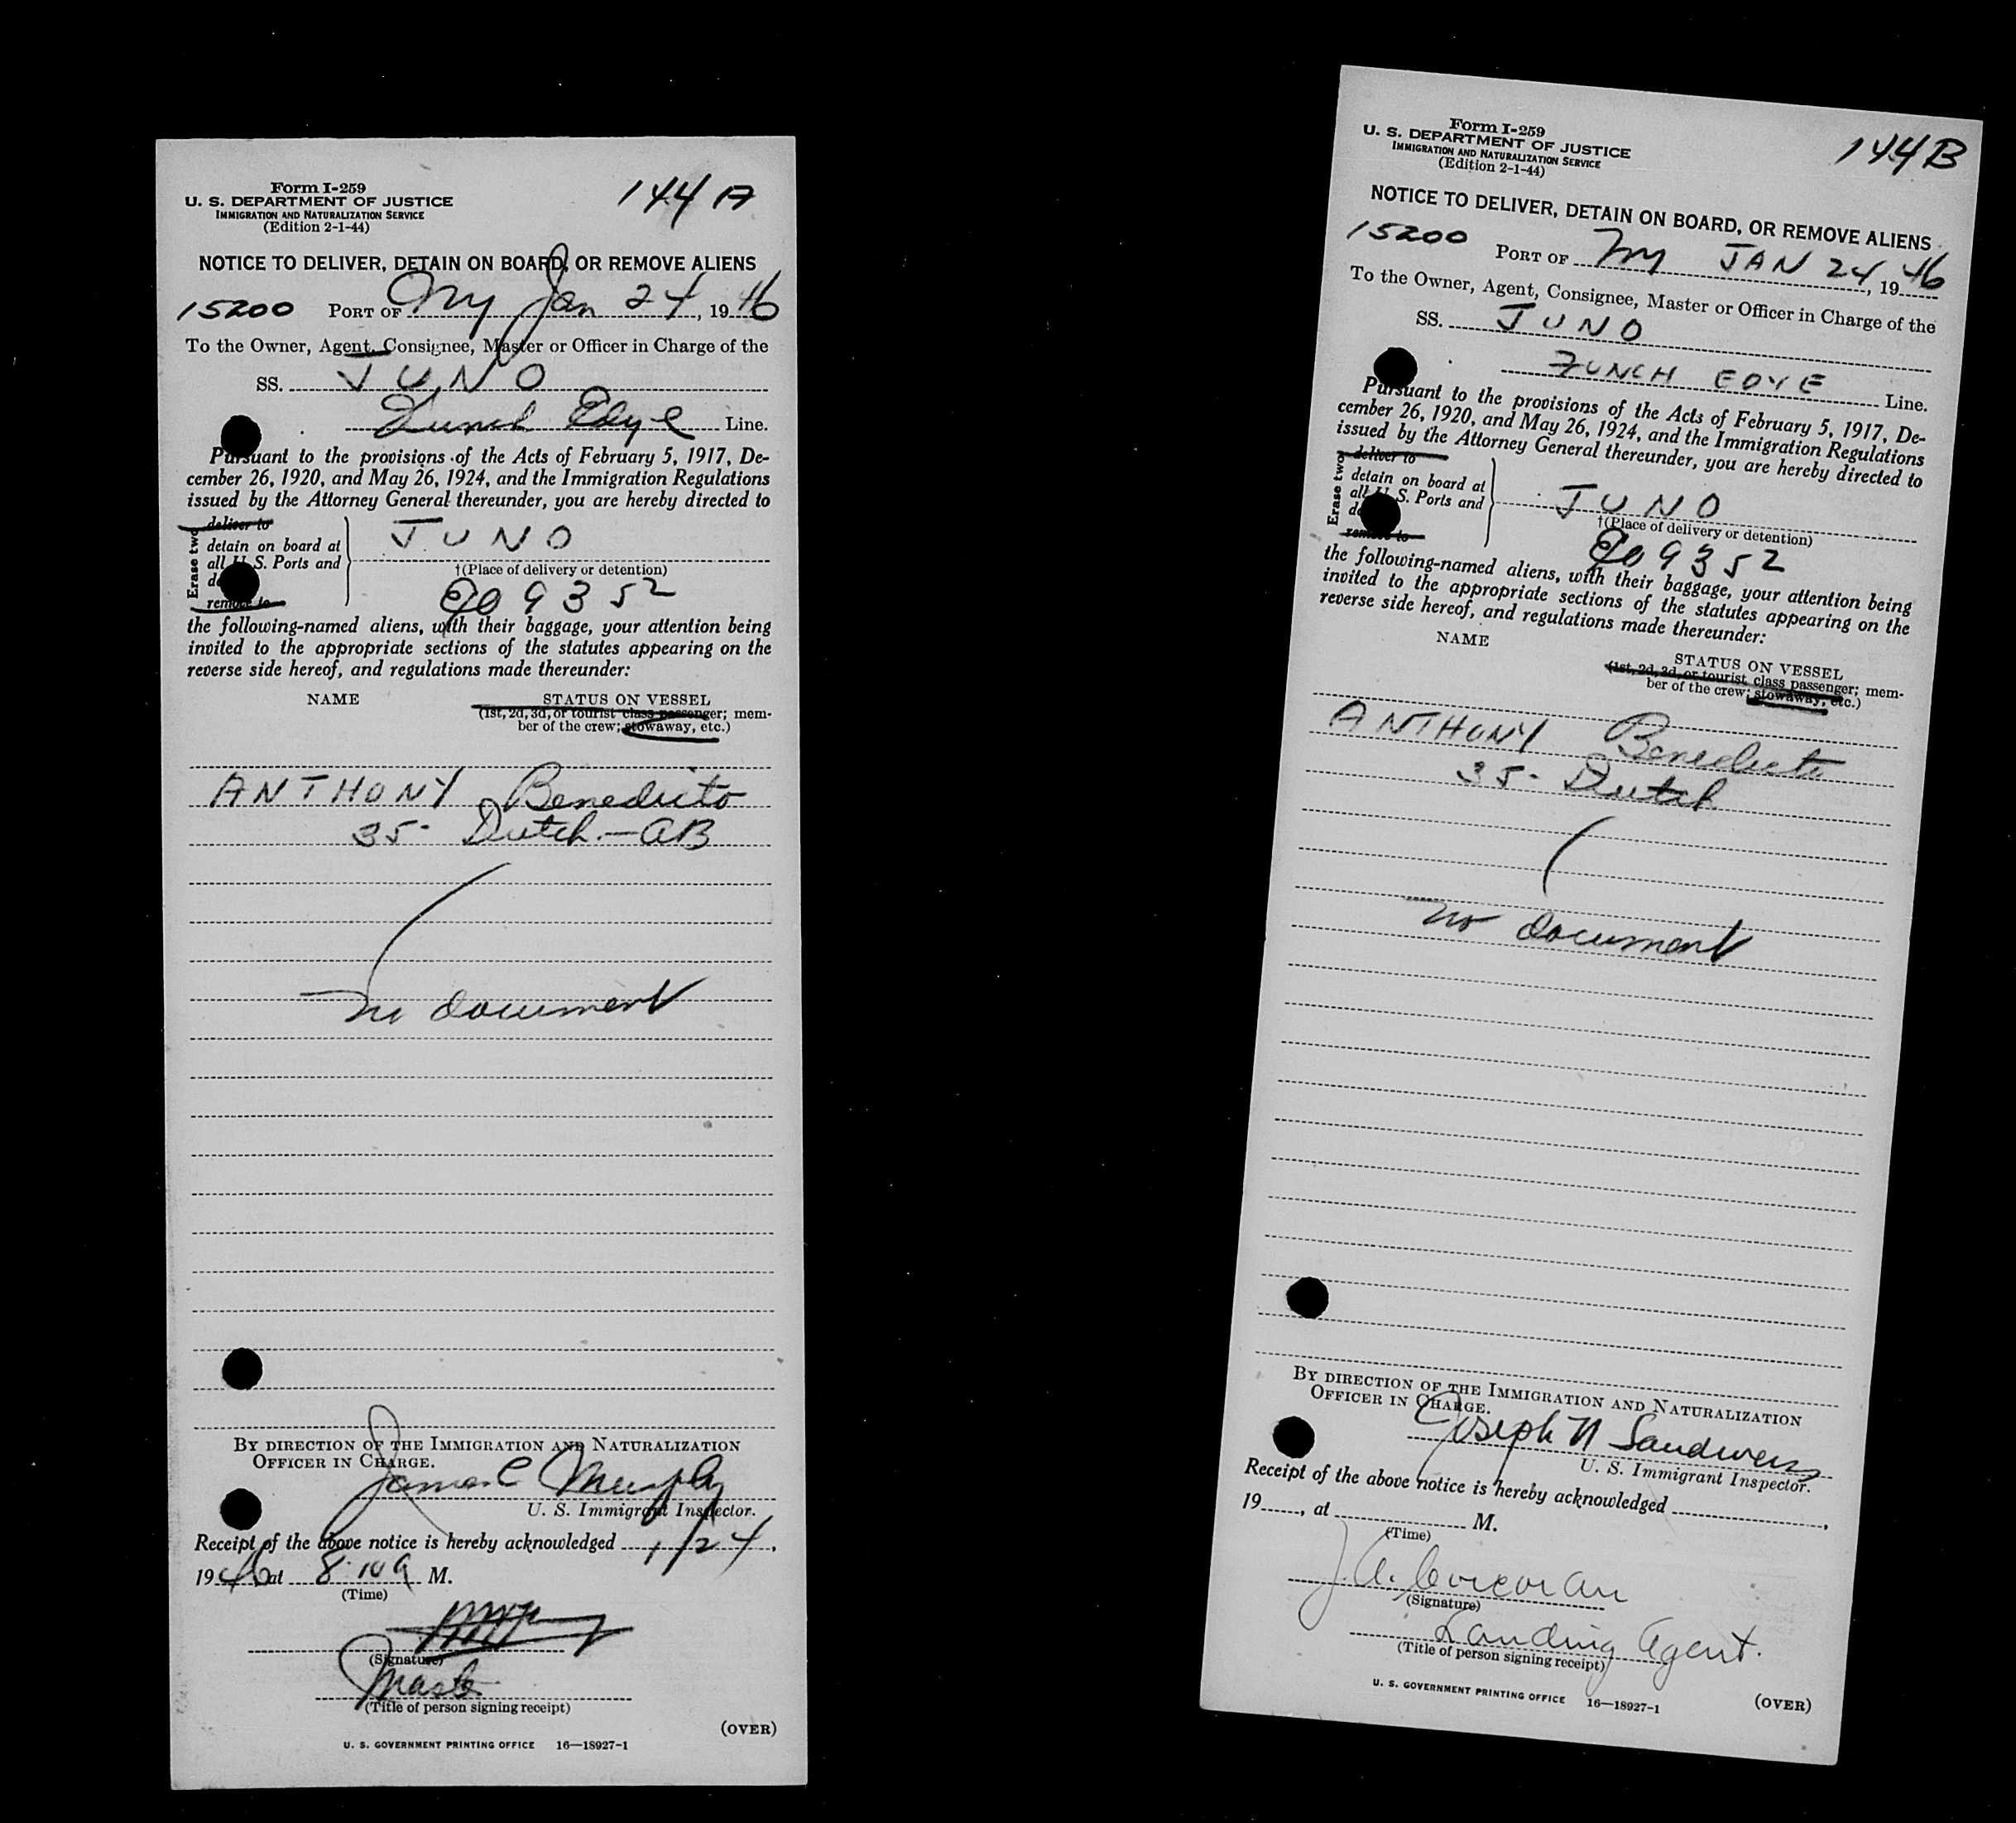 Form I-259
U. S. DEPARTMENT OF JUSTICE
IMMIGRATION AND NATURALIZATION SERVICE
(Edition 2-1-44)
144 A
NOTICE TO DELIVER, DETAIN ON BOARD, OR REMOVE ALIENS
15200 PORT OF NY Jan 24, 1946
To the Owner, Agent, Consignee, Master or Officer in Charge of the
SS. JUNO
Funch Edye Line.
Pursuant to the provisions of the Acts of February 5, 1917, De-
cember 26, 1920, and May 26, 1924, and the Immigration Regulations
issued by the Attorney General thereunder, you are hereby directed to
Erase two
deliver to
detain on board at
all U. S. Ports and
remove to
JUNO
†(Place of delivery or detention)
9352
the following-named aliens, with their baggage, your attention being
invited to the appropriate sections of the statutes appearing on the
reverse side hereof, and regulations made thereunder:
NAME STATUS ON VESSEL
(1st, 2d, 3d, or tourist class passenger; mem-
ber of the crew; stowaway, etc.)
ANTHONY Benedicto
35- Dutch - AB
no document
BY DIRECTION OF THE IMMIGRATION AND NATURALIZATION
OFFICER IN CHARGE.
James C Murphy
U. S. Immigrant Inspector.
Receipt of the above notice is hereby acknowledged 1/24,
1946 at 8:10 A M.
(Time)
(Signature)
Master
(Title of person signing receipt)
(OVER)
U. S. GOVERNMENT PRINTING OFFICE 16—18927-1
Form I-259
U. S. DEPARTMENT OF JUSTICE
IMMIGRATION AND NATURALIZATION SERVICE
(Edition 2-1-44)
144B
NOTICE TO DELIVER, DETAIN ON BOARD, OR REMOVE ALIENS
15200 PORT OF NY JAN 24, 1946
To the Owner, Agent, Consignee, Master or Officer in Charge of the
SS. JUNO
FUNCH EDYE Line.
Pursuant to the provisions of the Acts of February 5, 1917, De-
cember 26, 1920, and May 26, 1924, and the Immigration Regulations
issued by the Attorney General thereunder, you are hereby directed to
Erase two
deliver to
detain on board at
all U. S. Ports and
remove to
JUNO
†(Place of delivery or detention)
9352
the following-named aliens, with their baggage, your attention being
invited to the appropriate sections of the statutes appearing on the
reverse side hereof, and regulations made thereunder:
NAME STATUS ON VESSEL
(1st, 2d, 3d, or tourist class passenger; mem-
ber of the crew; stowaway, etc.)
ANTHONY Benedicto
35- Dutch
no document
BY DIRECTION OF THE IMMIGRATION AND NATURALIZATION
OFFICER IN CHARGE.
Joseph N
U. S. Immigrant Inspector.
Receipt of the above notice is hereby acknowledged ,
19 , at M.
(Time)
J. A. Corcoran
(Signature)
Landing Agent.
(Title of person signing receipt)
U. S. GOVERNMENT PRINTING OFFICE 16—18927-1
(OVER)